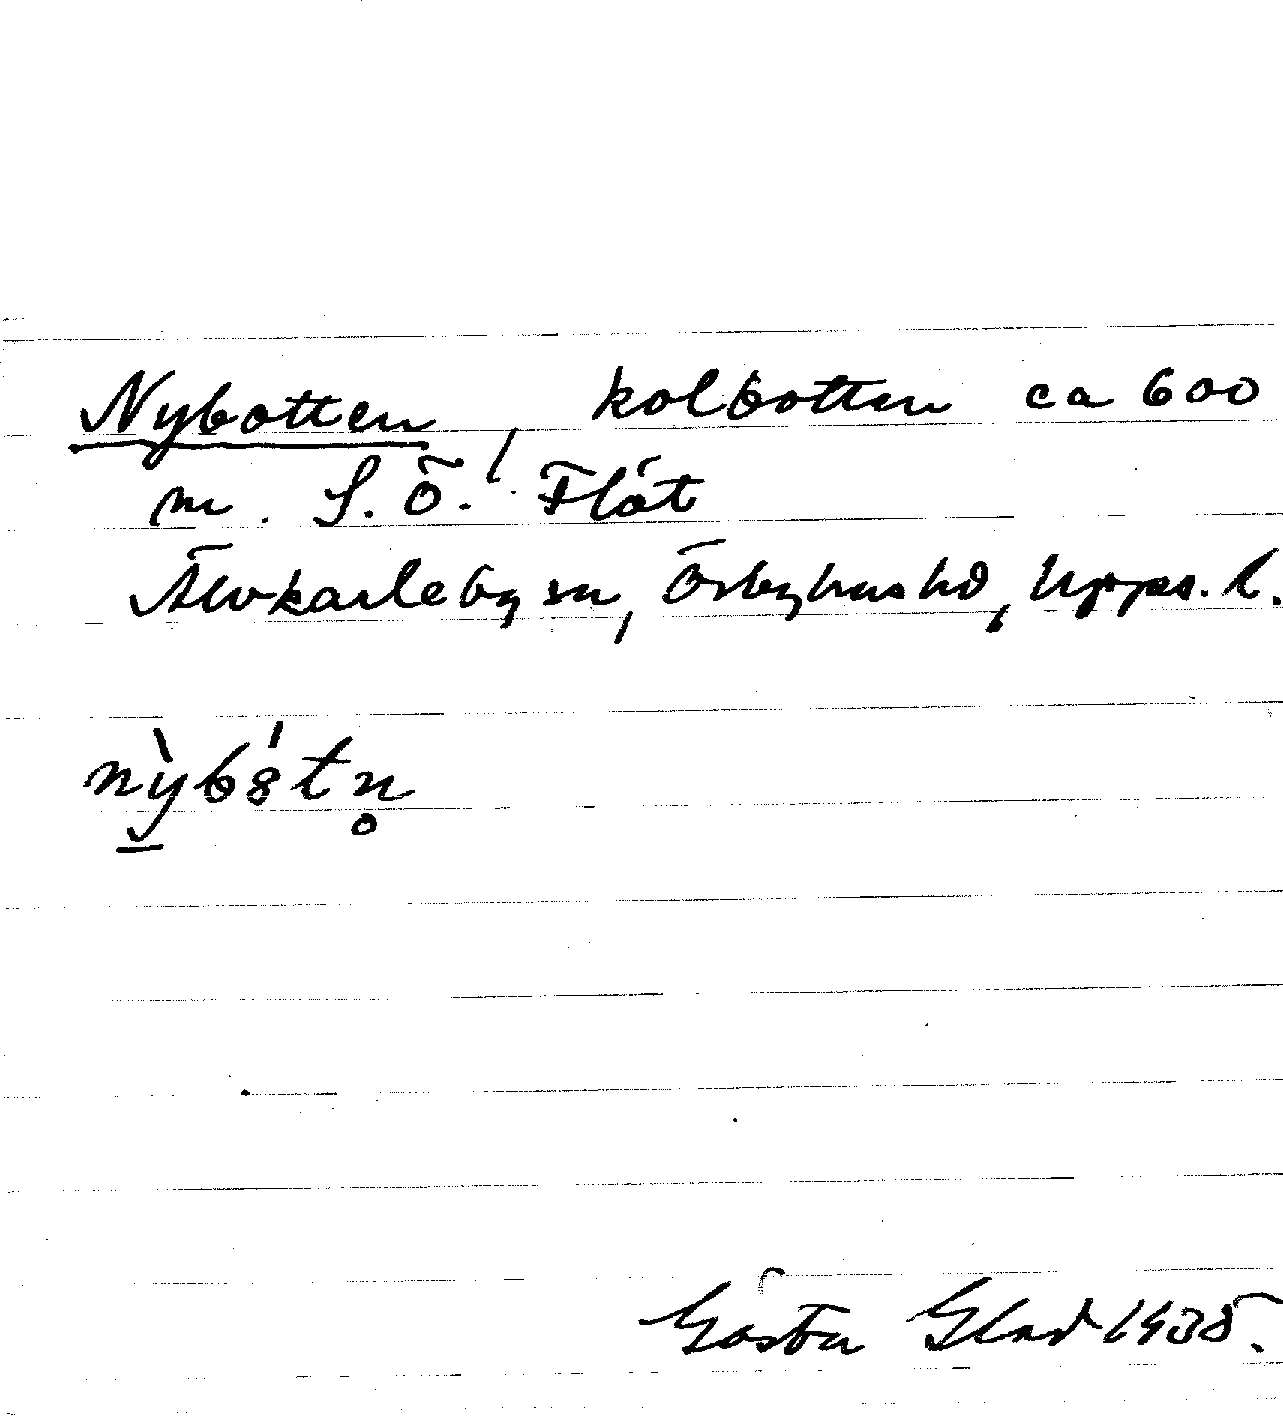 Nybotten, kolbotten ca 600
m. S.Ö. Flät
Älvkarleby sn, Örbyhus hd, Upps. l.
nỳb8́tn̥
Gösta Glad 1935.